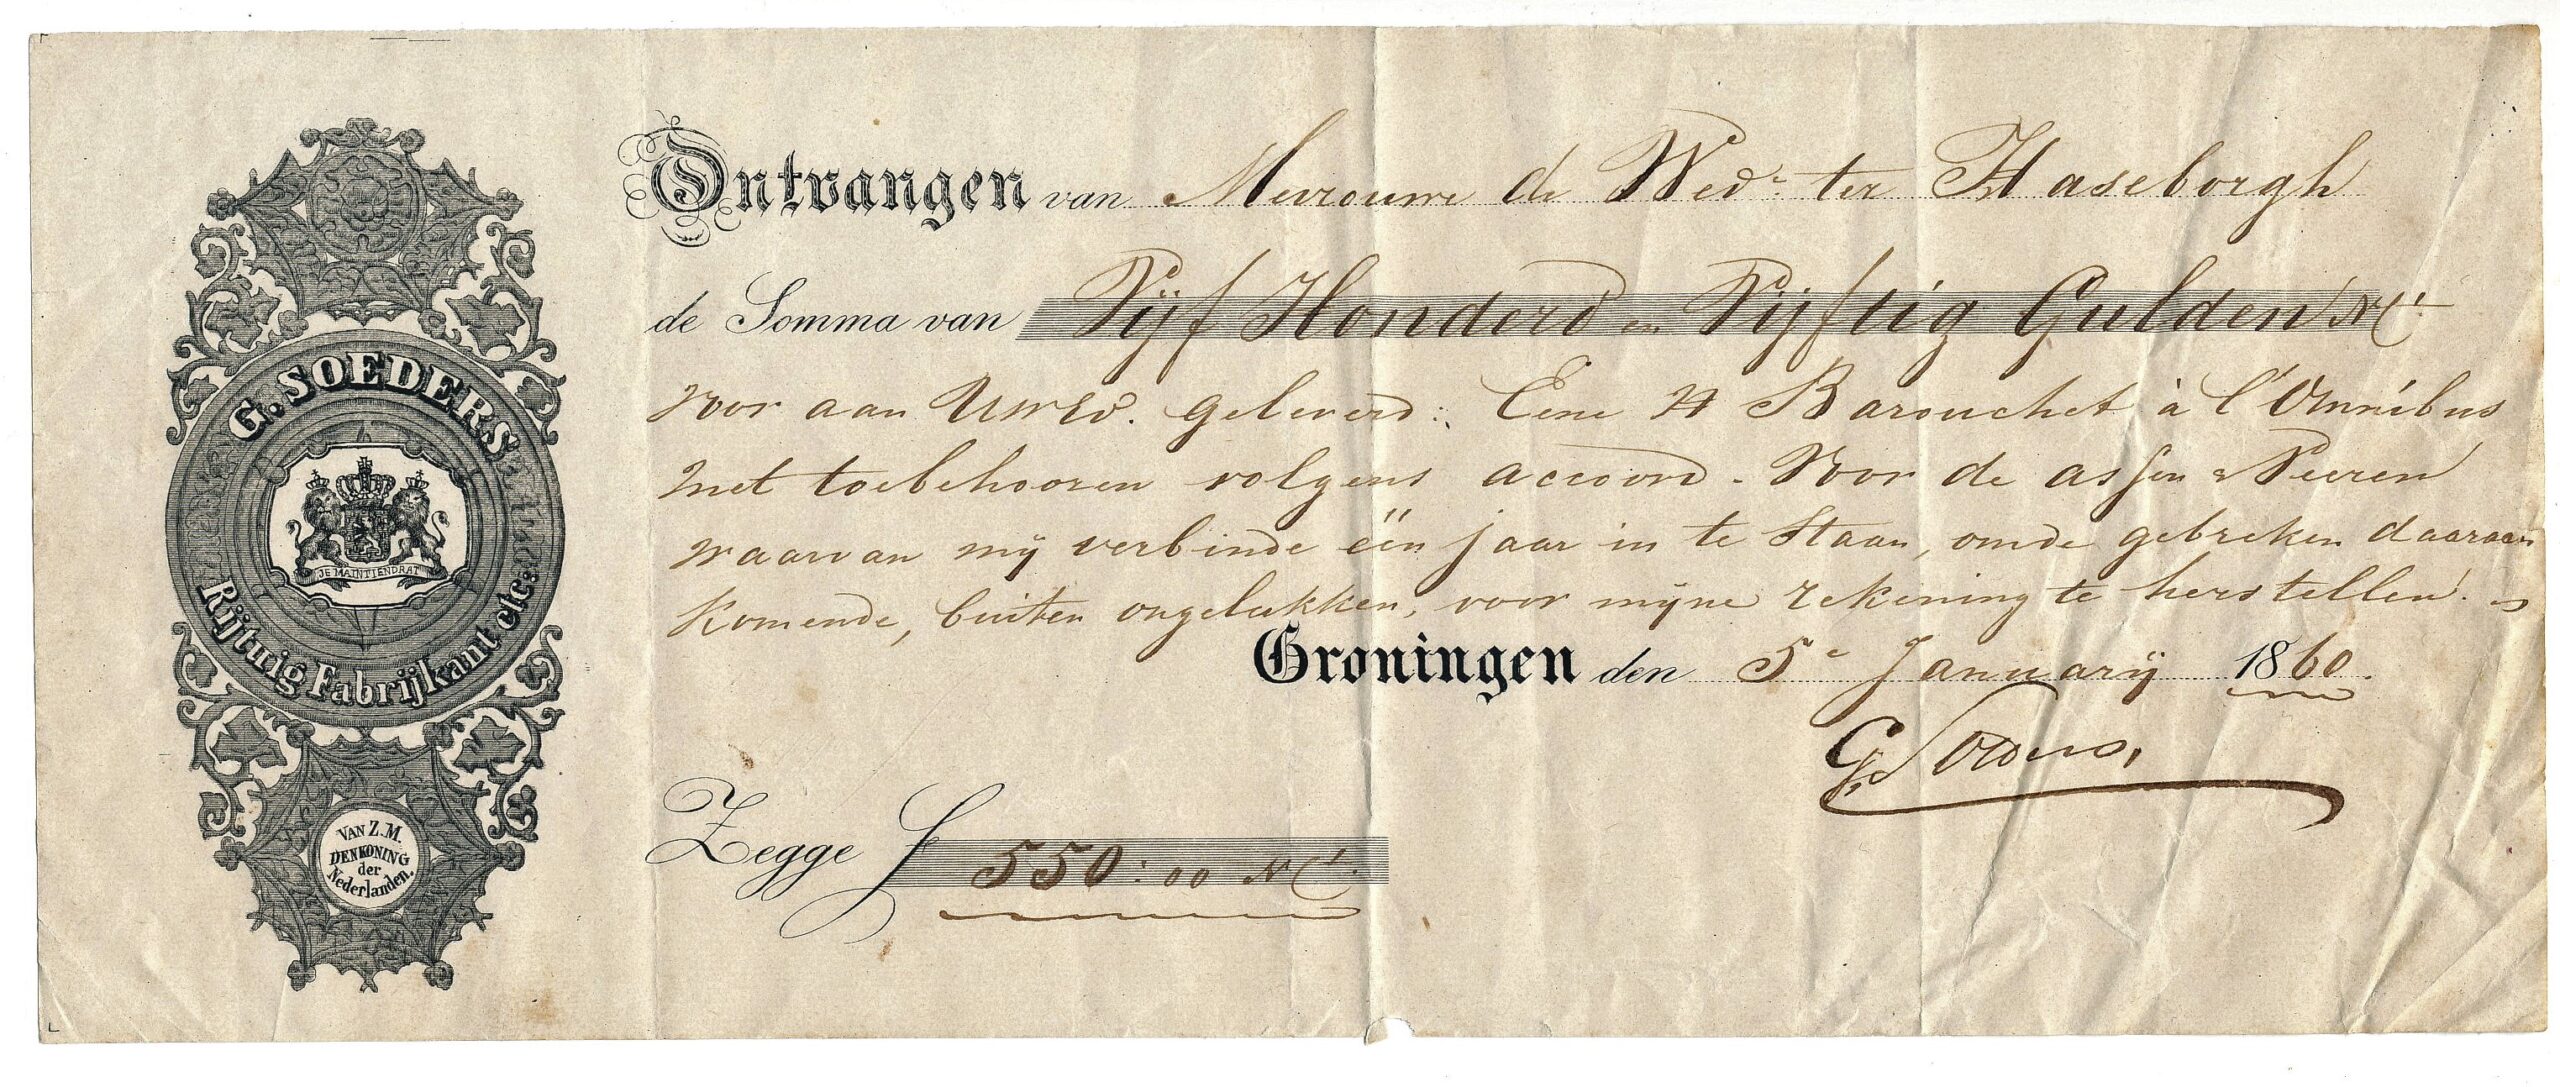 G. SOEDERS
JE MAINTIENDRAI
Rijtuig Fabrijkant etc:
VAN Z. M.
DEN KONING
der
Nederlanden.
Ontvangen van Mevrouwe de Wede ter Haseborgh
de Somma van Vijf Honderd en Vijftig Gulden NCt
voor aan UWEd. geleverd: Eene Barouchet à l'Omnibus
met toebehooren volgens accoord. Voor de assen & Veeren
waarvan mij verbinde één jaar in te staan, om de gebreken daaraan
komende, buiten ongelukken, voor mijne rekening te herstellen.
Groningen den 5e Januarij 1860.
G Soeders,
Zegge f 550:00 NCt.